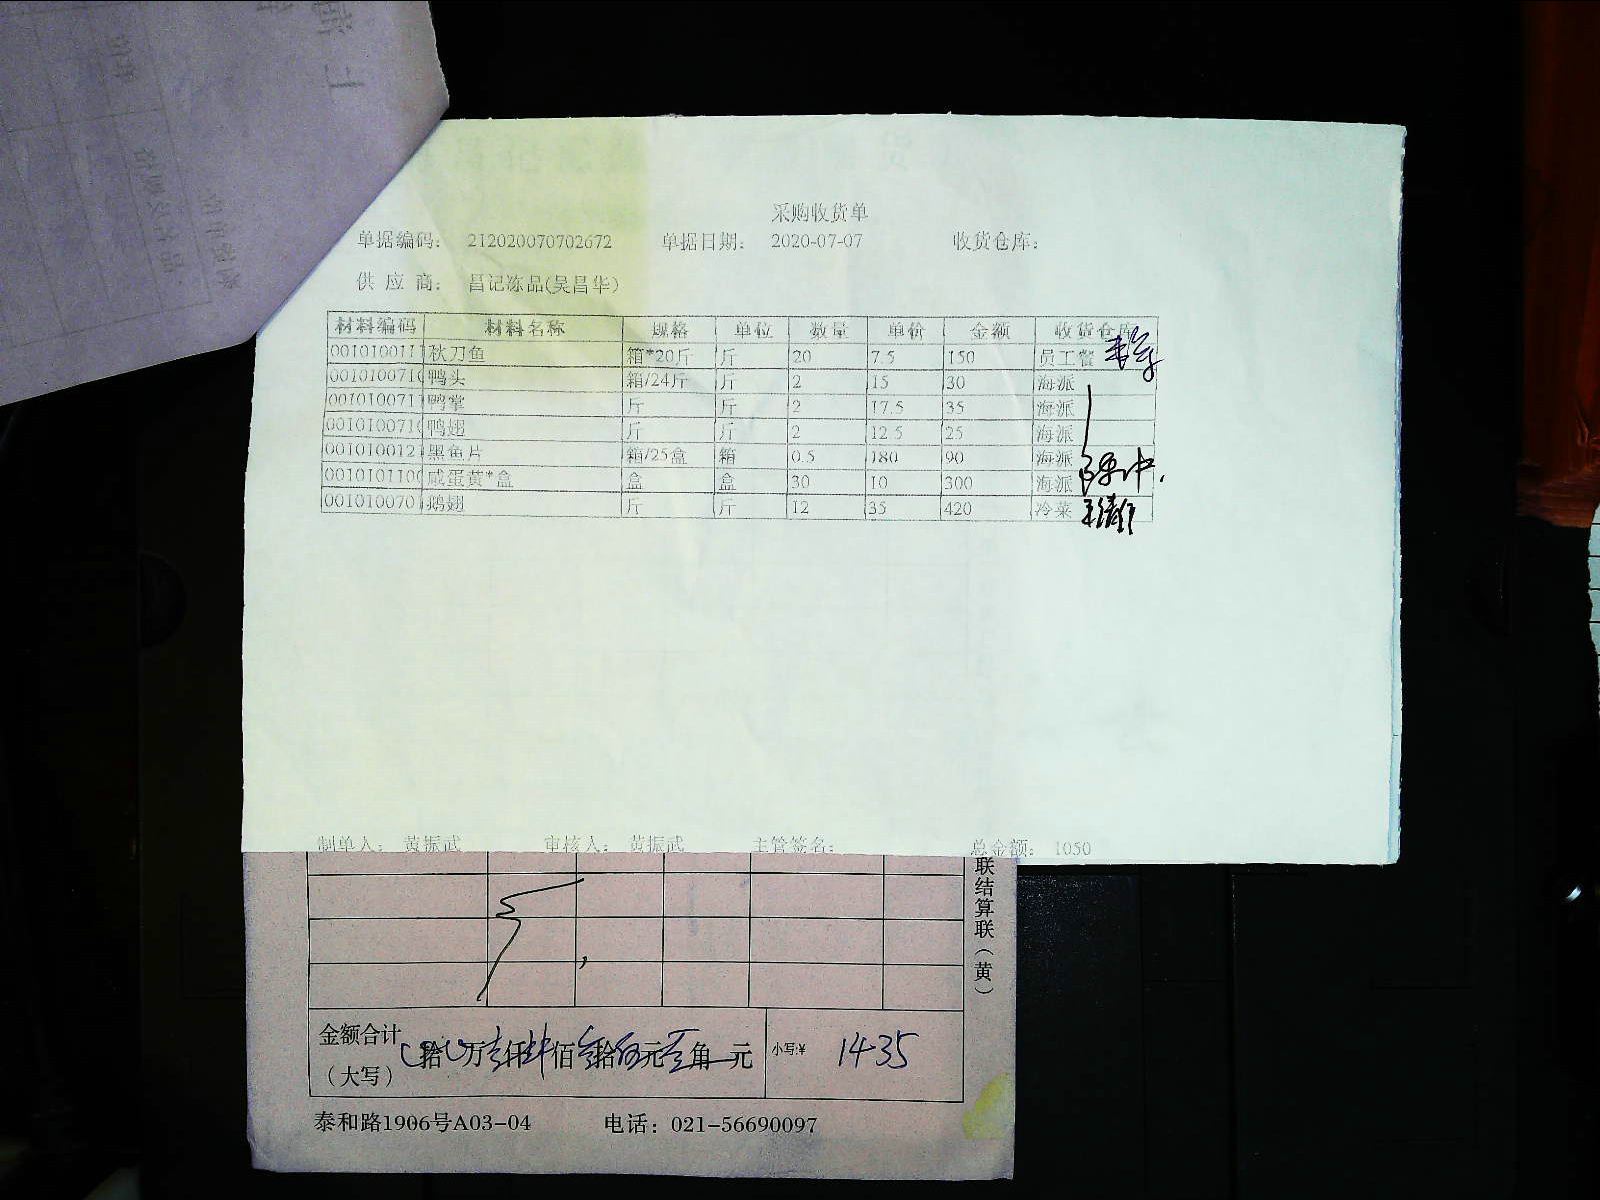 采购收货单
单据编码: 212020070702672 单据日期: 2020-07-07 收货仓库:
供应商: 昌记冻品(吴昌华)
材料编码 材料名称 规格 单位 数量 单价 金额 收货仓库
001010011 秋刀鱼 箱*20斤 斤 20 7.5 150 员工餐
001010071 鸭头 箱/24斤 斤 2 15 30 海派
001010071 鸭掌 斤 斤 2 17.5 35 海派
001010071 鸭翅 斤 斤 2 12.5 25 海派
001010012 黑鱼片 箱/25盒 箱 0.5 180 90 海派
001010110 咸蛋黄*盒 盒 盒 30 10 300 海派
001010070 鹅翅 斤 斤 12 35 420 冷菜
制单人: 黄振武 审核人: 黄振武 主管签名: 总金额: 1050
联结算联(黄)
金额合计(大写) 拾 万 仟 佰 拾 元 角 元 小写:¥ 1435
泰和路1906号A03-04 电话: 021-56690097